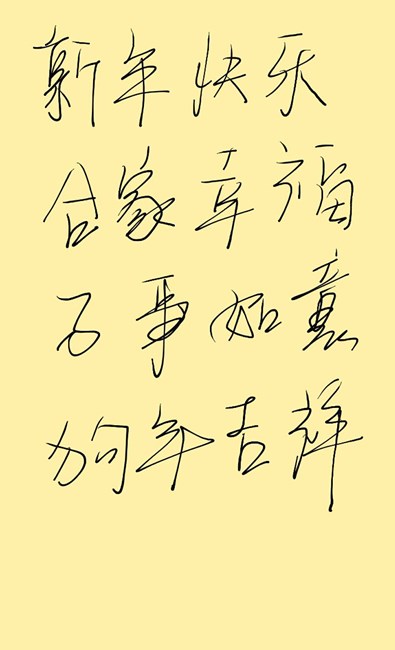 新年快乐
合家幸福
万事如意
狗年吉祥